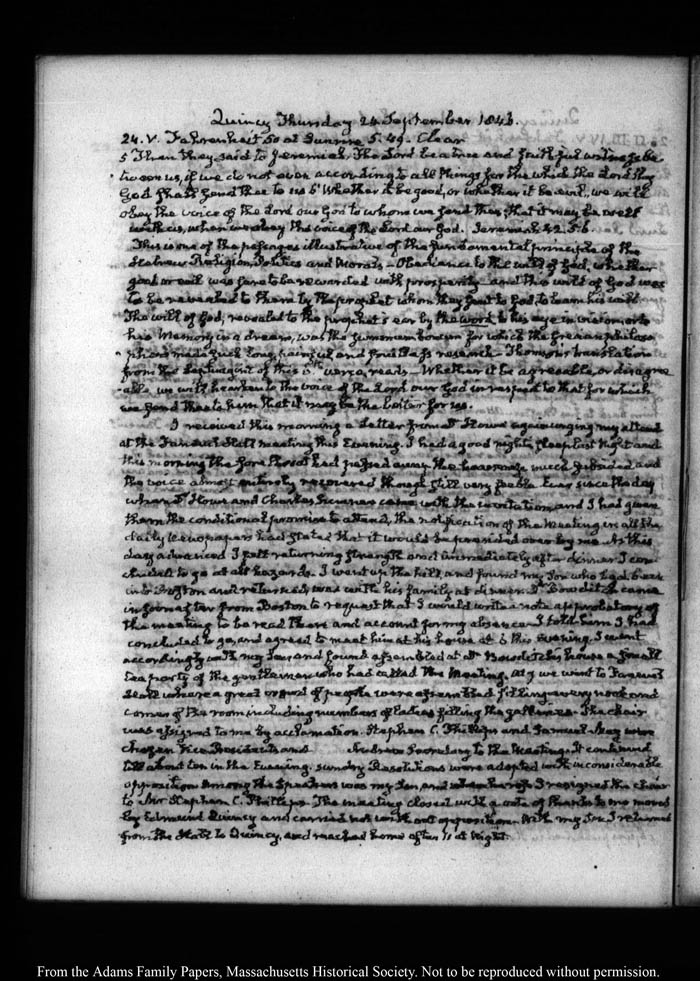 Quincy Thursday 24. September 1846.
24. V. Fahrenheit 50 at Sunrise 5.49. Clear
5 Then they said to Jeremiah, The Lord be a true and faithful witness be
tween us, if we do not even according to all things for the which the Lord thy
God shall send thee to us 6 Whether it be good, or whether it be evil, we will
obey the voice of the Lord our God to whom we send thee; that it may be well
with us, when we obey the voice of the Lord our God. Jeremiah 42. 5.6.
This is one of the passages illustrative of the fundamental principle of the
Hebrew Religion, Politics and Morals – Obedience to the will of God, whether
good or evil was sure to be rewarded with prosperity – and this will of God was
to be revealed to them by the prophet whom they sent to God, to learn his will
The will of God, revealed to the prophet's ear by the word, to his eye in vision, or to
his Memory in a dream, was the summum bonum for which the Grecian philoso
phers made such long, painful and fruitless research – Thomson's translation
from the Septuagint of this 6th verse, reads – Whether it be agreeable, or disagree
able, we will hearken to the voice of the Lord our God in respect to that for which
we send thee to him that it may be the better for us.
I received this morning a Letter from Dr Howe again urging my attend
at the Faneuil Hall meeting this Evening. I had a good night's sleep last Night and
this morning the Sore throat had passed away the hoarseness much abraded and
the voice almost entirely recovered though still very feeble. Ever since the day
when Dr Howe and Charles Sumner came with the invitation, and I had given
them the conditional promise to attend, the notification of the Meeting in all the
daily Newspapers had stated that it would be presided over by me. As this
day advanced I felt returning strength and immediately after dinner I con
cluded to go at all hazards. I went up the hill, and found my Son who had been
into Boston and returned, was with his family at dinner. Dr Bowditch came
in soon after from Boston to request that I would write a note approbatory of
the meeting to be read there and account for my absence. I told him I had
concluded to go, and agreed to meet him at his house at 6 this Evening. I went
accordingly with my Son, and found assembled at Dr Bowditch's house a small
tea party of the gentlemen who had called the Meeting. At 7 we went to Faneuil
Hall where a great crowd of people were assembled filling every nook and
corner of the room, including numbers of Ladies filling the galleries. The chair
was assigned to me by acclamation. Stephen C. Phillips and Samuel May were
chosen Vice Presidents and Andrew Secretary to the Meeting. It continued
till about ten in the Evening. sundry Resolutions were adopted with inconsiderable
opposition. Among the Speakers was my Son and I resigned the chair
to Mr Stephen C. Phillips. The meeting closed with a vote of thanks to me moved
by Edmund Quincy and carried not without opposition. With my Son I returned
from the Hall to Quincy, and reached home after 11 at Night.
From the Adams Family Papers, Massachusetts Historical Society. Not to be reproduced without permission.